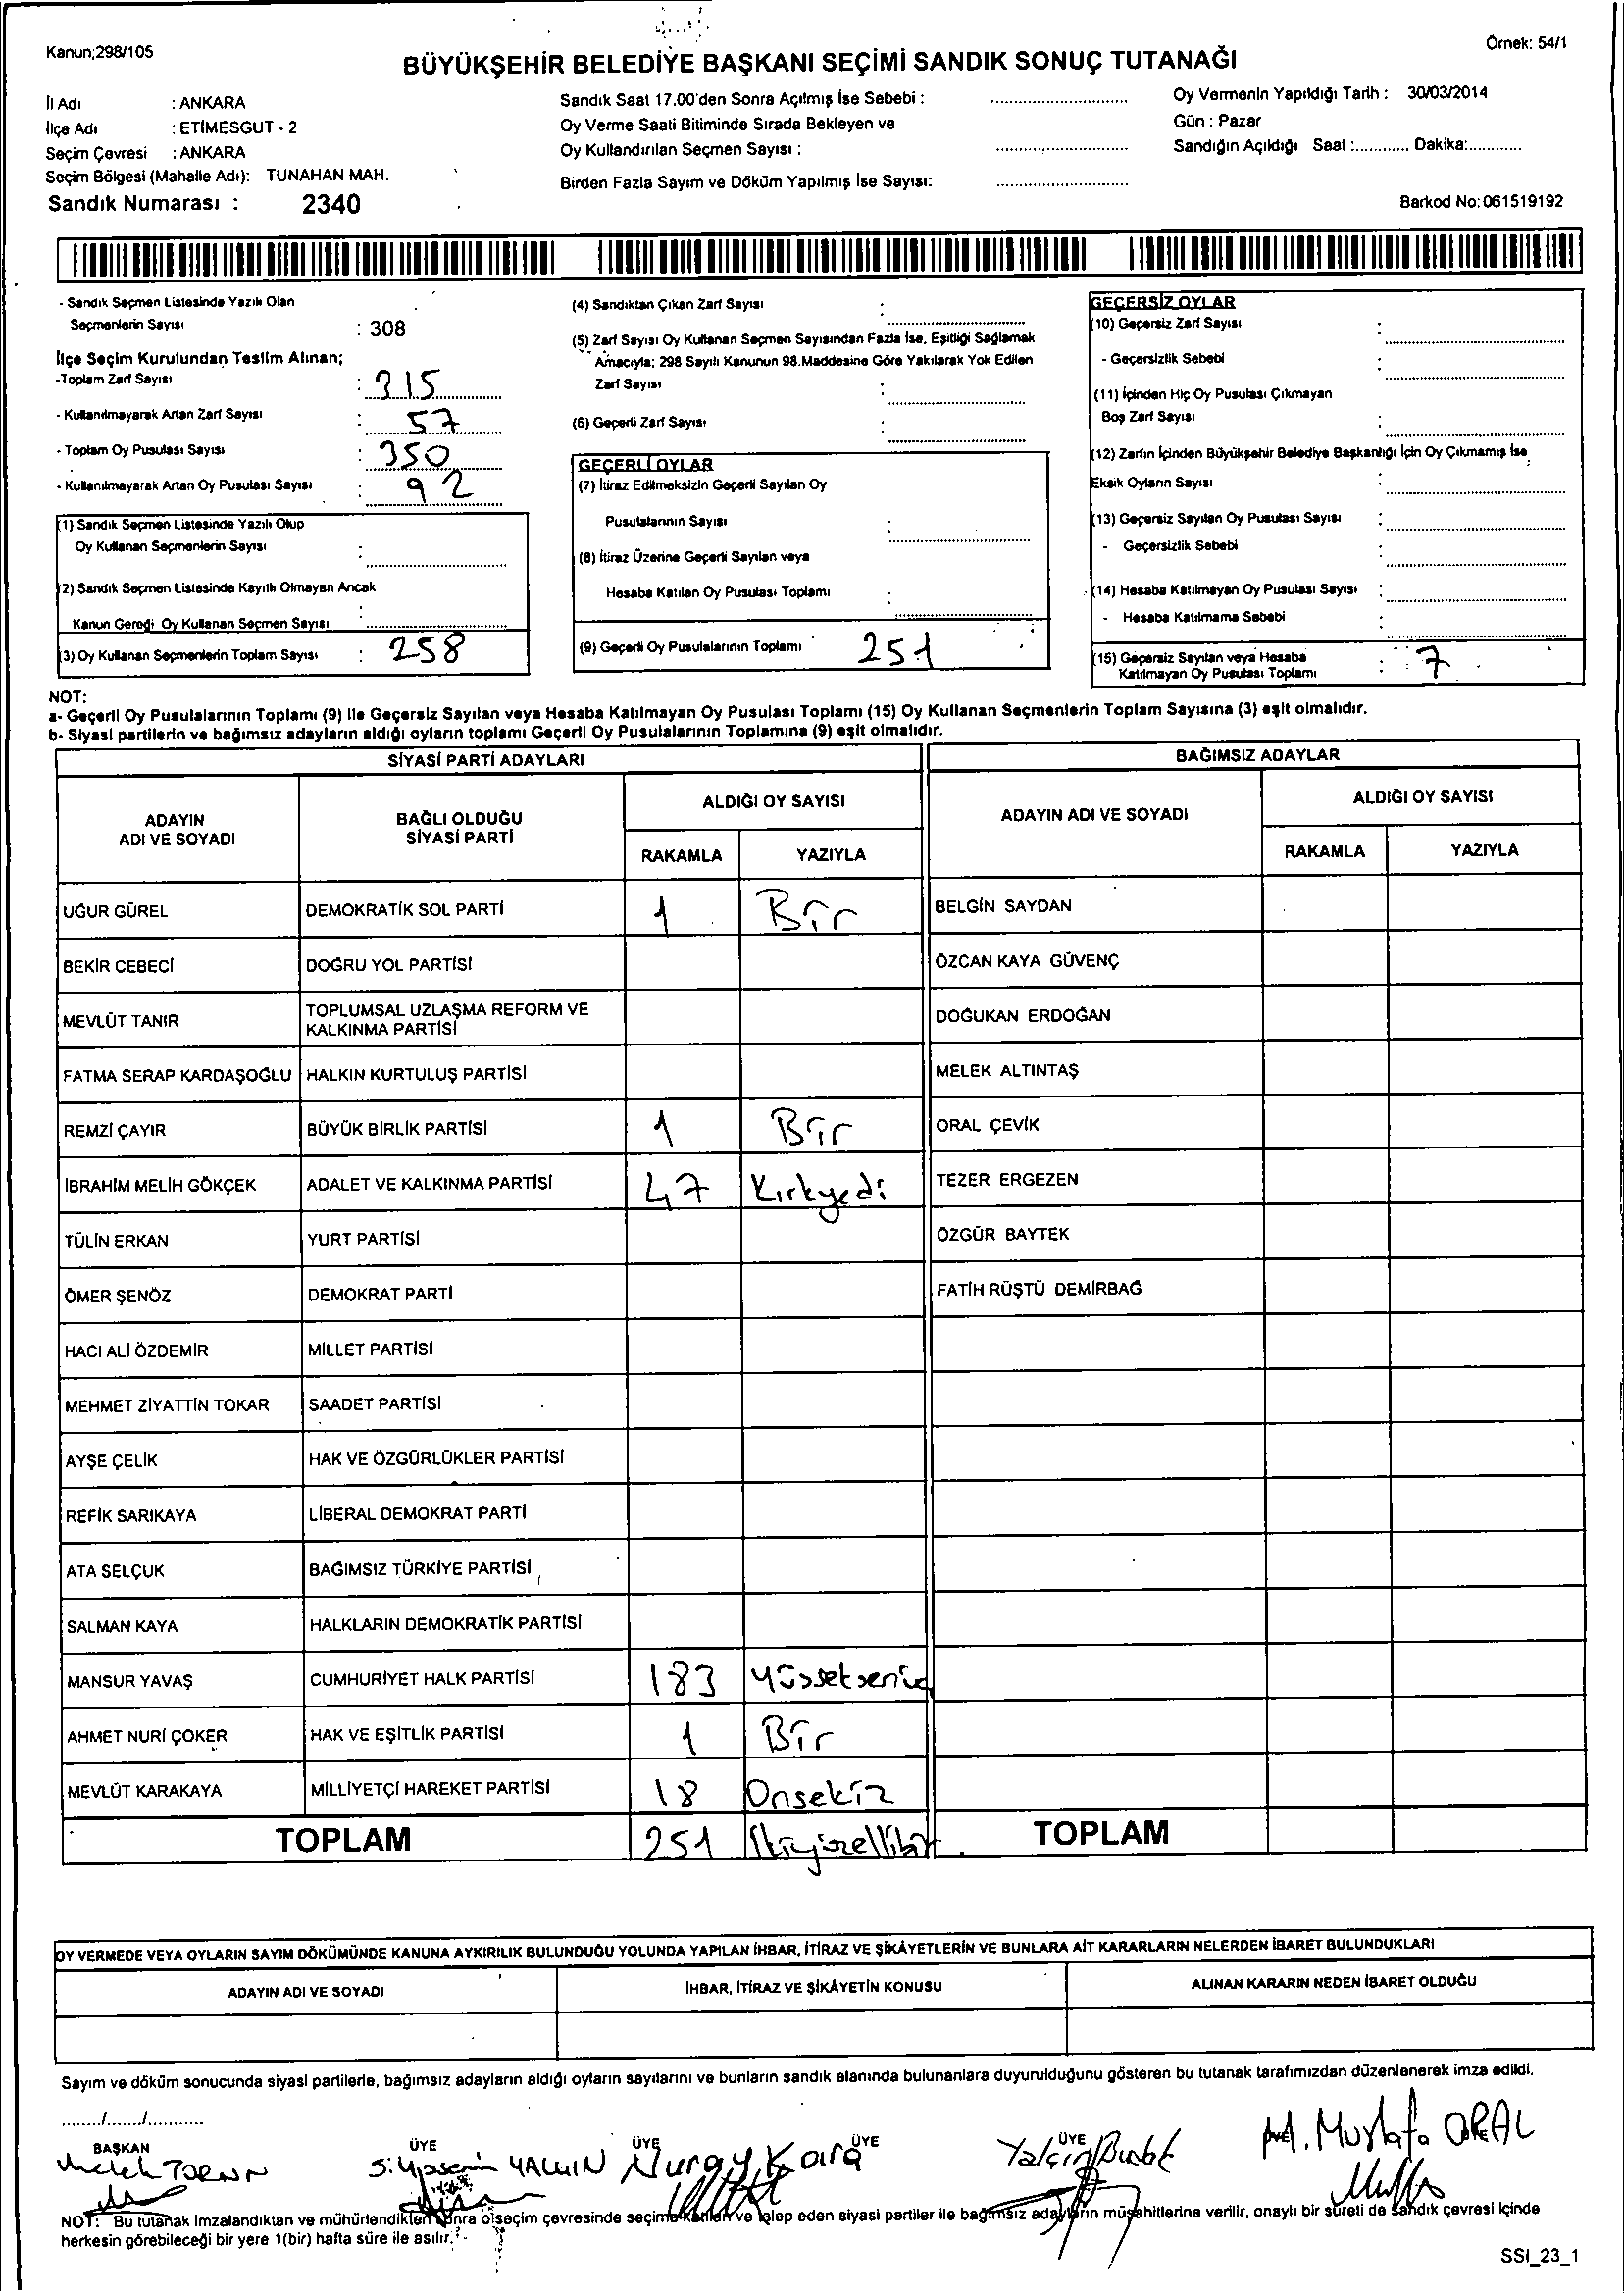 Kanun;298/105
Örnek: 54/1
BÜYÜKŞEHİR BELEDİYE BAŞKANI SEÇİMİ SANDIK SONUÇ TUTANAĞI
İl Adı : ANKARA
İlçe Adı : ETİMESGUT - 2
Seçim Çevresi : ANKARA
Seçim Bölgesi (Mahalle Adı): TUNAHAN MAH.
Sandık Numarası : 2340
Sandık Saat 17.00'den Sonra Açılmış İse Sebebi :
Oy Verme Saati Bitiminde Sırada Bekleyen ve
Oy Kullandırılan Seçmen Sayısı :
Birden Fazla Sayım ve Döküm Yapılmış İse Sayısı:
Oy Vermenin Yapıldığı Tarih : 30/03/2014
Gün : Pazar
Sandığın Açıldığı Saat :............ Dakika:............
Barkod No:061519192
- Sandık Seçmen Listesinde Yazılı Olan
Seçmenlerin Sayısı : 308
İlçe Seçim Kurulundan Teslim Alınan;
-Toplam Zarf Sayısı : 315
- Kullanılmayarak Artan Zarf Sayısı : 57
- Toplam Oy Pusulası Sayısı : 350
- Kullanılmayarak Artan Oy Pusulası Sayısı : 92
(1) Sandık Seçmen Listesinde Yazılı Olup
Oy Kullanan Seçmenlerin Sayısı :
(2) Sandık Seçmen Listesinde Kayıtlı Olmayan Ancak
Kanun Gereği Oy Kullanan Seçmen Sayısı :
(3) Oy Kullanan Seçmenlerin Toplam Sayısı : 258
(4) Sandıktan Çıkan Zarf Sayısı :
(5) Zarf Sayısı Oy Kullanan Seçmen Sayısından Fazla İse, Eşitliği Sağlamak
Amacıyla; 298 Sayılı Kanunun 98.Maddesine Göre Yakılarak Yok Edilen
Zarf Sayısı :
(6) Geçerli Zarf Sayısı :
GEÇERLİ OYLAR
(7) İtiraz Edilmeksizin Geçerli Sayılan Oy
Pusulalarının Sayısı :
(8) İtiraz Üzerine Geçerli Sayılan veya
Hesaba Katılan Oy Pusulası Toplamı :
(9) Geçerli Oy Pusulalarının Toplamı : 251
GEÇERSİZ OYLAR
(10) Geçersiz Zarf Sayısı :
- Geçersizlik Sebebi :
(11) İçinden Hiç Oy Pusulası Çıkmayan
Boş Zarf Sayısı :
(12) Zarfın İçinden Büyükşehir Belediye Başkanlığı İçin Oy Çıkmamış İse
Eksik Oyların Sayısı :
(13) Geçersiz Sayılan Oy Pusulası Sayısı :
- Geçersizlik Sebebi :
(14) Hesaba Katılmayan Oy Pusulası Sayısı :
- Hesaba Katılmama Sebebi :
(15) Geçersiz Sayılan veya Hesaba
Katılmayan Oy Pusulası Toplamı : 7
NOT:
a- Geçerli Oy Pusulalarının Toplamı (9) ile Geçersiz Sayılan veya Hesaba Katılmayan Oy Pusulası Toplamı (15) Oy Kullanan Seçmenlerin Toplam Sayısına (3) eşit olmalıdır.
b- Siyasi partilerin ve bağımsız adayların aldığı oyların toplamı Geçerli Oy Pusulalarının Toplamına (9) eşit olmalıdır.
SİYASİ PARTİ ADAYLARI BAĞIMSIZ ADAYLAR
ADAYIN
ADI VE SOYADI
BAĞLI OLDUĞU
SİYASİ PARTİ
ALDIĞI OY SAYISI
RAKAMLA YAZIYLA
ADAYIN ADI VE SOYADI
ALDIĞI OY SAYISI
RAKAMLA YAZIYLA
UĞUR GÜREL DEMOKRATİK SOL PARTİ 1 Bir BELGİN SAYDAN
BEKİR CEBECİ DOĞRU YOL PARTİSİ ÖZCAN KAYA GÜVENÇ
MEVLÜT TANIR TOPLUMSAL UZLAŞMA REFORM VE
KALKINMA PARTİSİ DOĞUKAN ERDOĞAN
FATMA SERAP KARDAŞOĞLU HALKIN KURTULUŞ PARTİSİ MELEK ALTINTAŞ
REMZİ ÇAYIR BÜYÜK BİRLİK PARTİSİ 1 Bir ORAL ÇEVİK
İBRAHİM MELİH GÖKÇEK ADALET VE KALKINMA PARTİSİ 47 Kırkyedi TEZER ERGEZEN
TÜLİN ERKAN YURT PARTİSİ ÖZGÜR BAYTEK
ÖMER ŞENÖZ DEMOKRAT PARTİ FATİH RÜŞTÜ DEMİRBAĞ
HACI ALİ ÖZDEMİR MİLLET PARTİSİ
MEHMET ZİYATTİN TOKAR SAADET PARTİSİ
AYŞE ÇELİK HAK VE ÖZGÜRLÜKLER PARTİSİ
REFİK SARIKAYA LİBERAL DEMOKRAT PARTİ
ATA SELÇUK BAĞIMSIZ TÜRKİYE PARTİSİ
SALMAN KAYA HALKLARIN DEMOKRATİK PARTİSİ
MANSUR YAVAŞ CUMHURİYET HALK PARTİSİ 183
AHMET NURİ ÇOKER HAK VE EŞİTLİK PARTİSİ 1 Bir
MEVLÜT KARAKAYA MİLLİYETÇİ HAREKET PARTİSİ 18 Onsekiz
TOPLAM 251 İkiyüzellibir TOPLAM
OY VERMEDE VEYA OYLARIN SAYIM DÖKÜMÜNDE KANUNA AYKIRILIK BULUNDUĞU YOLUNDA YAPILAN İHBAR, İTİRAZ VE ŞİKÂYETLERİN VE BUNLARA AİT KARARLARIN NELERDEN İBARET BULUNDUKLARI
ADAYIN ADI VE SOYADI İHBAR, İTİRAZ VE ŞİKÂYETİN KONUSU ALINAN KARARIN NEDEN İBARET OLDUĞU
Sayım ve döküm sonucunda siyasi partilerle, bağımsız adayların aldığı oyların sayılarını ve bunların sandık alanında bulunanlara duyurulduğunu gösteren bu tutanak tarafımızdan düzenlenerek imza edildi.
......../......./...........
BAŞKAN ÜYE ÜYE ÜYE ÜYE
YALÇIN Nuray Kara Yalçın M. Mustafa ORAL
NOT: Bu tutanak imzalandıktan ve mühürlendikten sonra o seçim çevresinde seçime katılan ve talep eden siyasi partiler ile bağımsız adayların müşahitlerine verilir, onaylı bir sureti de sandık çevresi içinde
herkesin görebileceği bir yere 1(bir) hafta süre ile asılır.
SSI_23_1